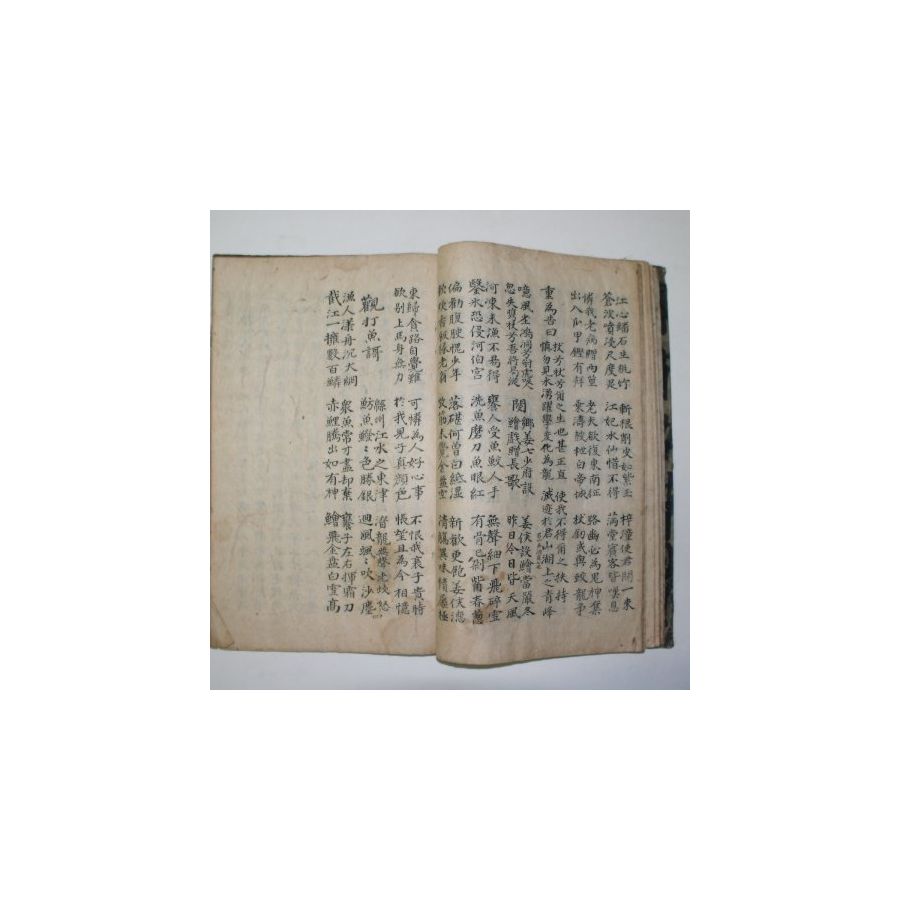 江心蟠石生桃竹 斬根削皮如紫玉 梓潼使君開一束
蒼波噴浸尺度足 江妃水仙惜不得 滿堂賓客皆嘆息
憐我老病贈兩莖 老夫欲復東南征 路幽必為鬼神奪
出入爪甲鏗有聲 乘濤鼓枻白帝城 拔劍或與蛟龍爭
重為告曰 杖兮杖兮爾之生也甚正直 使我不得爾之扶持
慎勿見水湧躍學變化為龍 滅迹於君山湖上之青峰
噫風塵澒洞兮豺虎咬 閿鄉姜七少府設 姜侯設鱠當嚴冬
忽失雙杖兮吾將曷從 鱠戲贈長歌 昨日今日皆天風
河凍未漁不易得 饔人受魚鮫人手 無聲細下飛碎雪
鑿氷恐侵河伯宮 洗魚磨刀魚眼紅 有骨已剁觜春蔥
偏勸腹腴愧少年 落碪何曾白紙濕 新歡更飽姜侯德
軟炊香飯緣老翁 放筯未覺金盤空 清觴異味情屢極
東歸貪路自覺難 可憐為人好心事 不恨我衰子貴時
欲別上馬身無力 於我見子真顏色 悵望且為今相憶
觀打魚謌 綿州江水之東津 潛龍無聲老蛟怒
魴魚鱍〻色勝銀 迴風颯〻吹沙塵
漁人漾舟沉大網 衆魚常才盡却棄 饔子左右揮霜刀
截江一擁數百鱗 赤鯉騰出如有神 鱠飛金盤白雪高